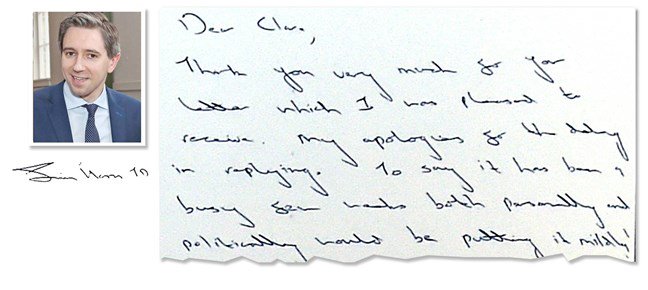 Dear Clare,
Thank you very much for your
letter which I was pleased to
receive. My apologies for the delay
in replying. To say it has been a
busy few weeks both personally and
politically would be putting it mildly!
TD